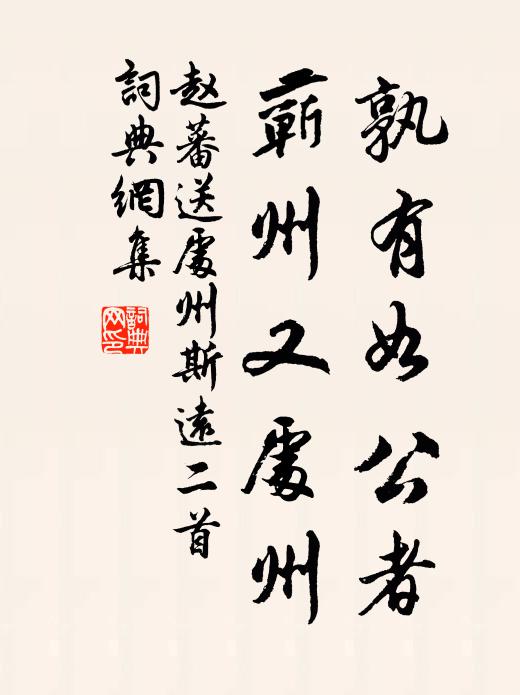 孰有如公者
蘄州又處州
赵蕃送處州斯遠二首
詞典網集
詞典网印